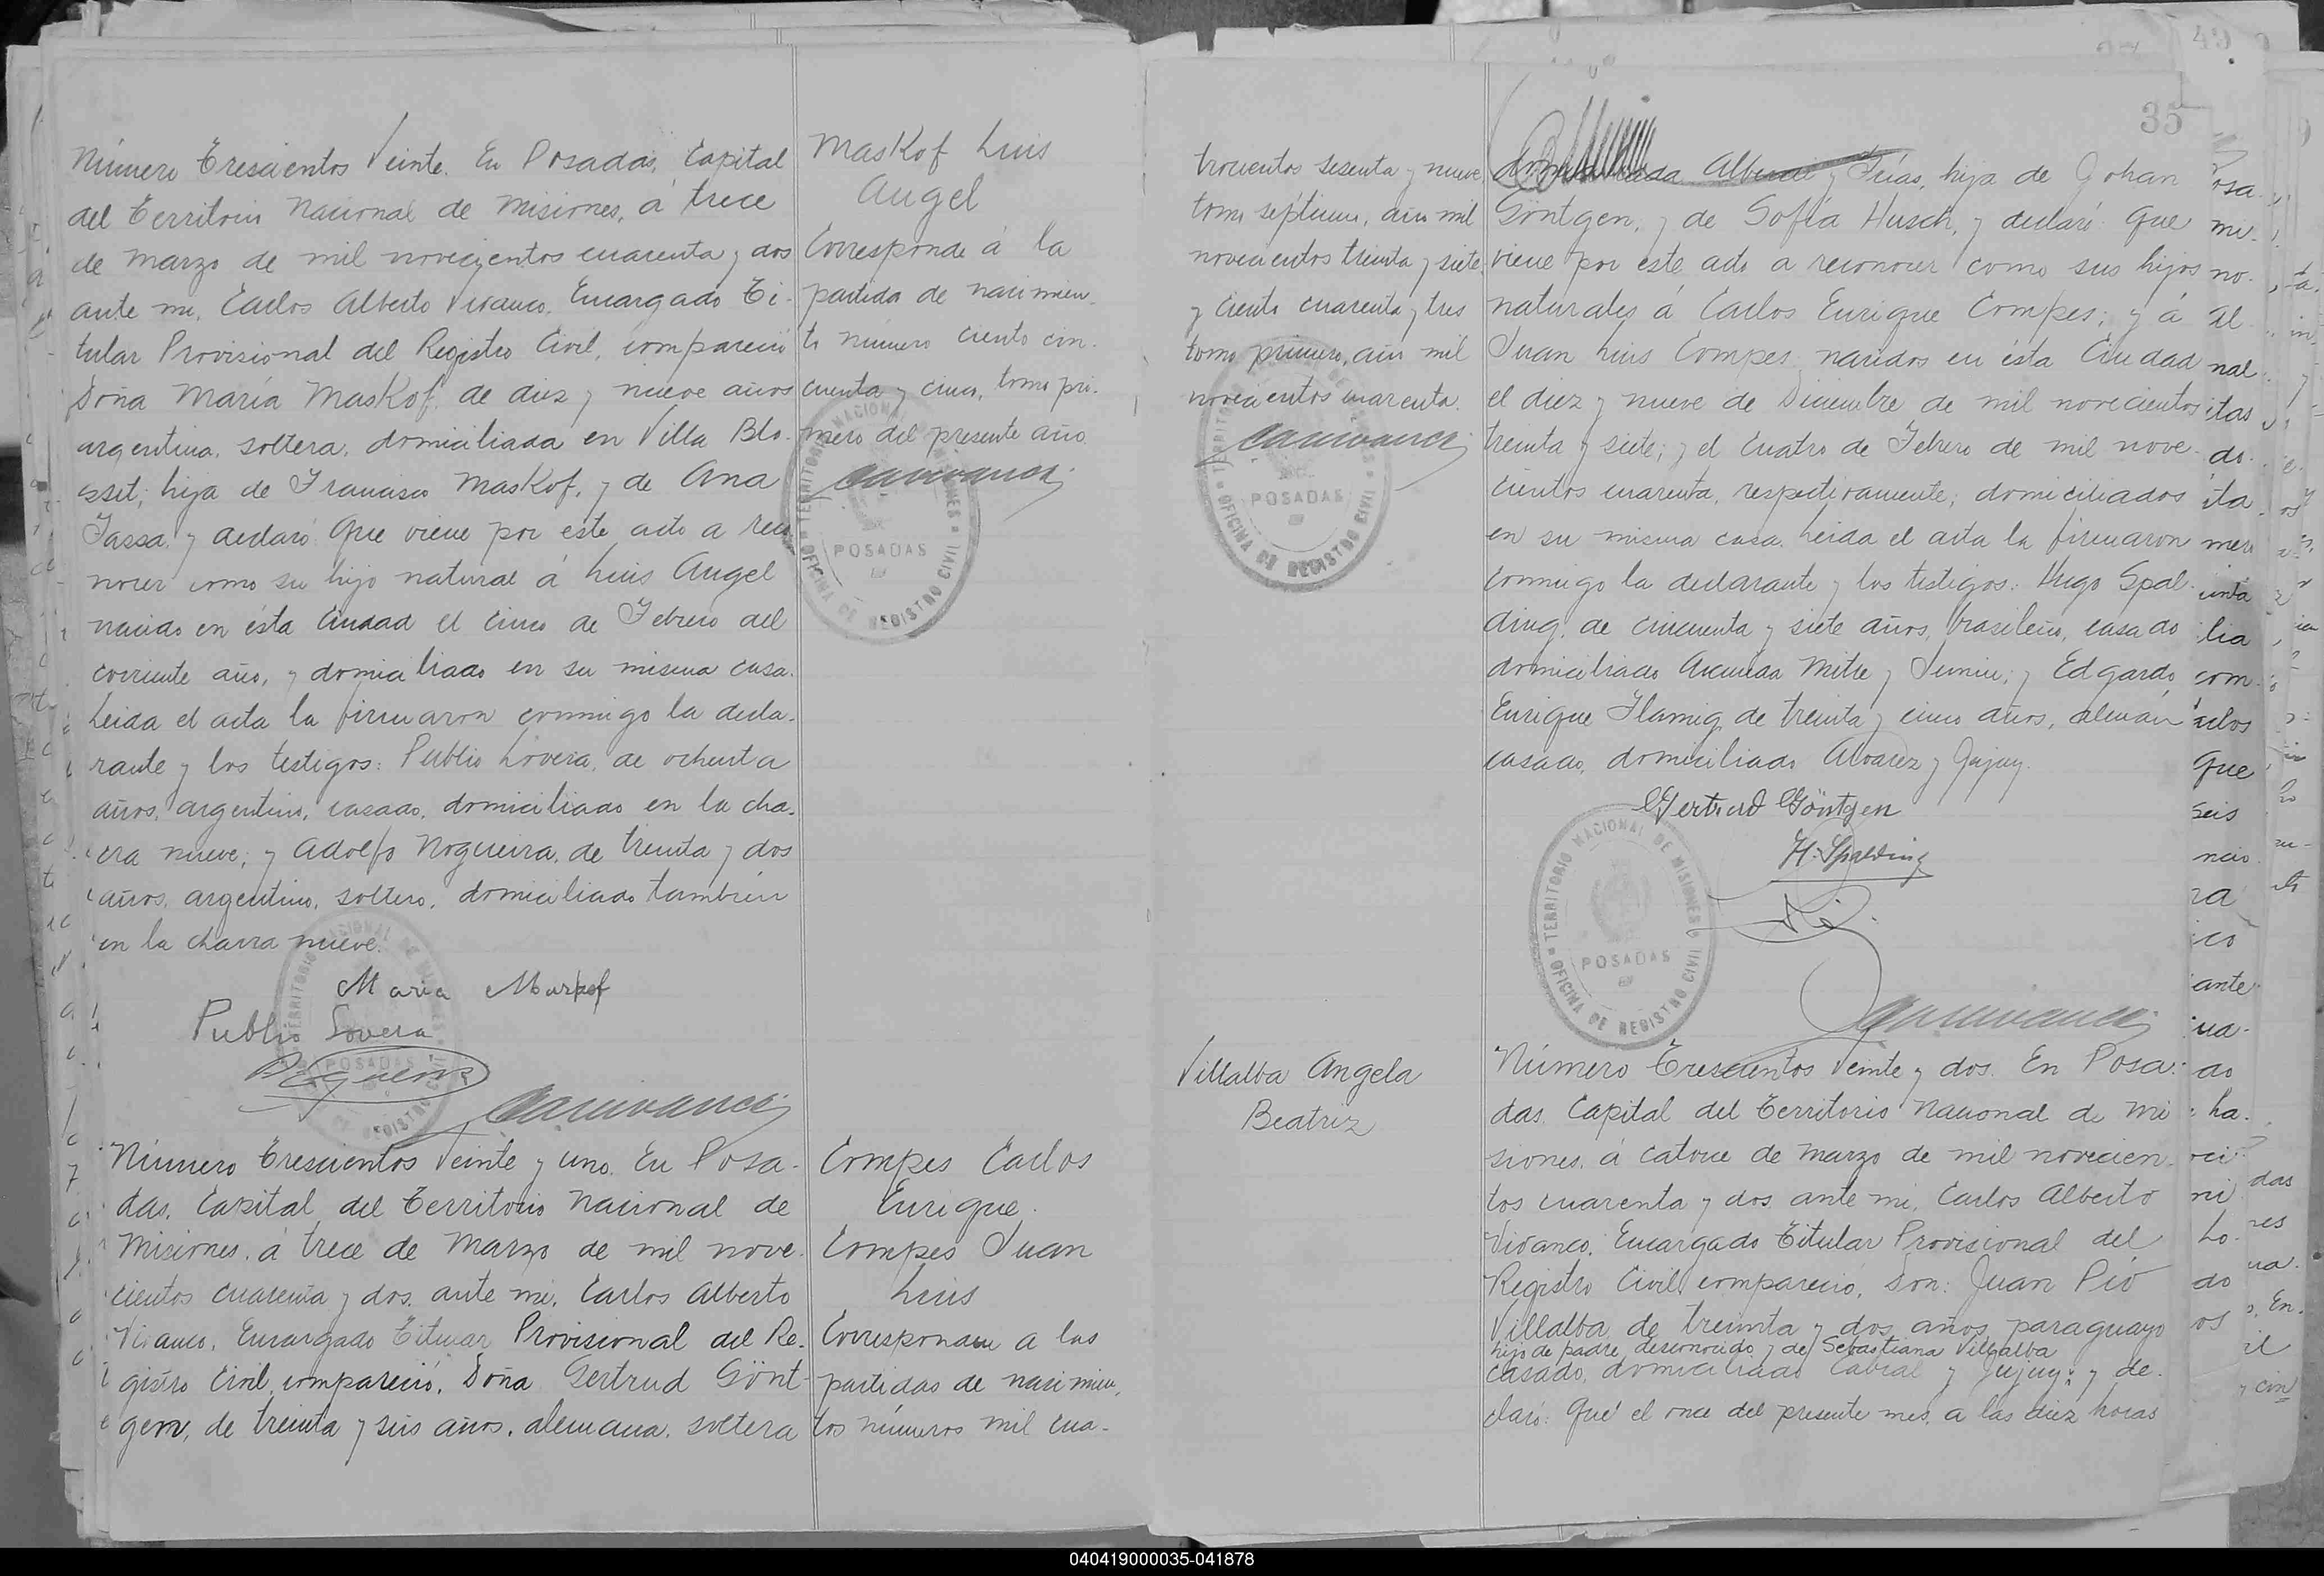 Número Trescientos Veinte. En Posadas, Capital
del Territorio Nacional de Misiones, á trece
de Marzo de mil novecientos cuarenta y dos
ante mi, Carlos Alberto Vivanco, Encargado Ti-
tular Provisional del Registro Civil, compareció
Doña María Maskof, de diez y nueve años
argentina, soltera, domiciliada en Villa Blo-
sset; hija de Francisco Maskof, y de Ana
Tassa, y declaró: Que viene por este acto a reco
nocer como su hijo natural á Luis Angel
nacido en ésta Ciudad el cinco de Febrero del
corriente año, y domiciliado en su misma casa.
Leida el acta la firmaron conmigo la decla-
rante y los testigos: Publio Lovera, de ochenta
años, argentino, casado, domiciliado en la cha-
cra nueve; y Adolfo Nogueira, de treinta y dos
años, argentino, soltero, domiciliado también
en la chacra nueve.
Maria Maskof
Publio Lovera
Maskof Luis
Angel
Corresponde á la
partida de nacimien-
to número ciento cin-
cuenta y cinco, tomo pri-
mero del presente año.
TERRITORIO NACIONAL DE MISIONES
POSADAS
OFICINA DE REGISTRO CIVIL
Número Trescientos Veinte y uno. En Posa-
das, Capital del Territorio Nacional de
Misiones, á trece de Marzo de mil nove-
cientos cuarenta y dos, ante mi, Carlos Alberto
Vivanco, Encargado Titular Provisional del Re-
gistro Civil, compareció, Doña Gertrud Gönt-
gen, de treinta y seis años, alemana, soltera
Compes Carlos
Enrique.
Compes Juan
Luis
Corresponden a las
partidas de nacimien-
tos números mil cua-
trocientos sesenta y nueve
tomo séptimo, año mil
novecientos treinta y siete
y ciento cuarenta y tres
tomo primero, año mil
novecientos cuarenta.
TERRITORIO NACIONAL DE MISIONES
POSADAS
OFICINA DE REGISTRO CIVIL
35
y Frías, hija de Johan
Göntgen, y de Sofía Husch, y declaró: Que
viene por este acto a reconocer como sus hijos
naturales á Carlos Enrique Compes; y á
Juan Luis Compes, nacidos en ésta Ciudad
el diez y nueve de Diciembre de mil novecientos
treinta y siete; y el cuatro de Febrero de mil nove-
cientos cuarenta, respectivamente; domiciliados
en su misma casa. Leida el acta la firmaron
conmigo la declarante y los testigos: Hugo Spal-
ding, de cincuenta y siete años, brasileño, casado
domiciliado Avenida Mitre y Junin; y Edgardo
Enrique Flamig, de treinta y cinco años, alemán
casado, domiciliado Alvarez y Jujuy.
Gertrud Göntgen
H. Spalding
TERRITORIO NACIONAL DE MISIONES
POSADAS
OFICINA DE REGISTRO CIVIL
Villalba Angela
Beatriz
Número Trescientos Veinte y dos. En Posa-
das, Capital del Territorio Nacional de Mi
siones, á catorce de Marzo de mil novecien-
tos cuarenta y dos, ante mi, Carlos Alberto
Vivanco, Encargado Titular Provisional del
Registro Civil, compareció, Don: Juan Pío
Villalba de treinta y dos años, paraguayo
hijo de padre desconocido y de Sebastiana Villalba
casado, domiciliado Cabral y Jujuy; y de-
claró: Qué el once del presente mes, a las diez horas
040419000035-041878